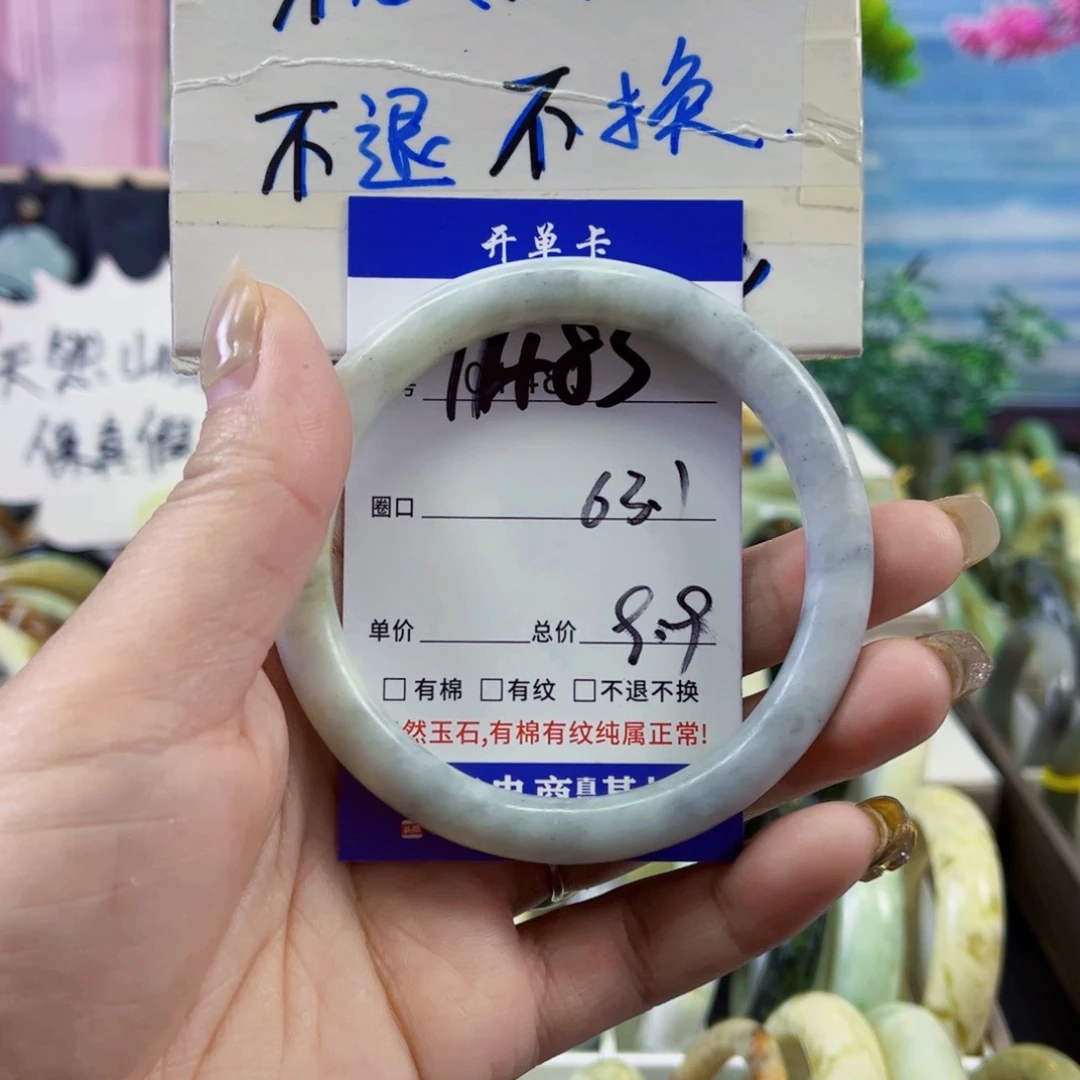 不退不换.
开单卡
号 11485
圈口 63.1
单价 总价 9.9
□有棉 □有纹 □不退不换
然玉石,有棉有纹纯属正常!
电商真基
天然山
保真假